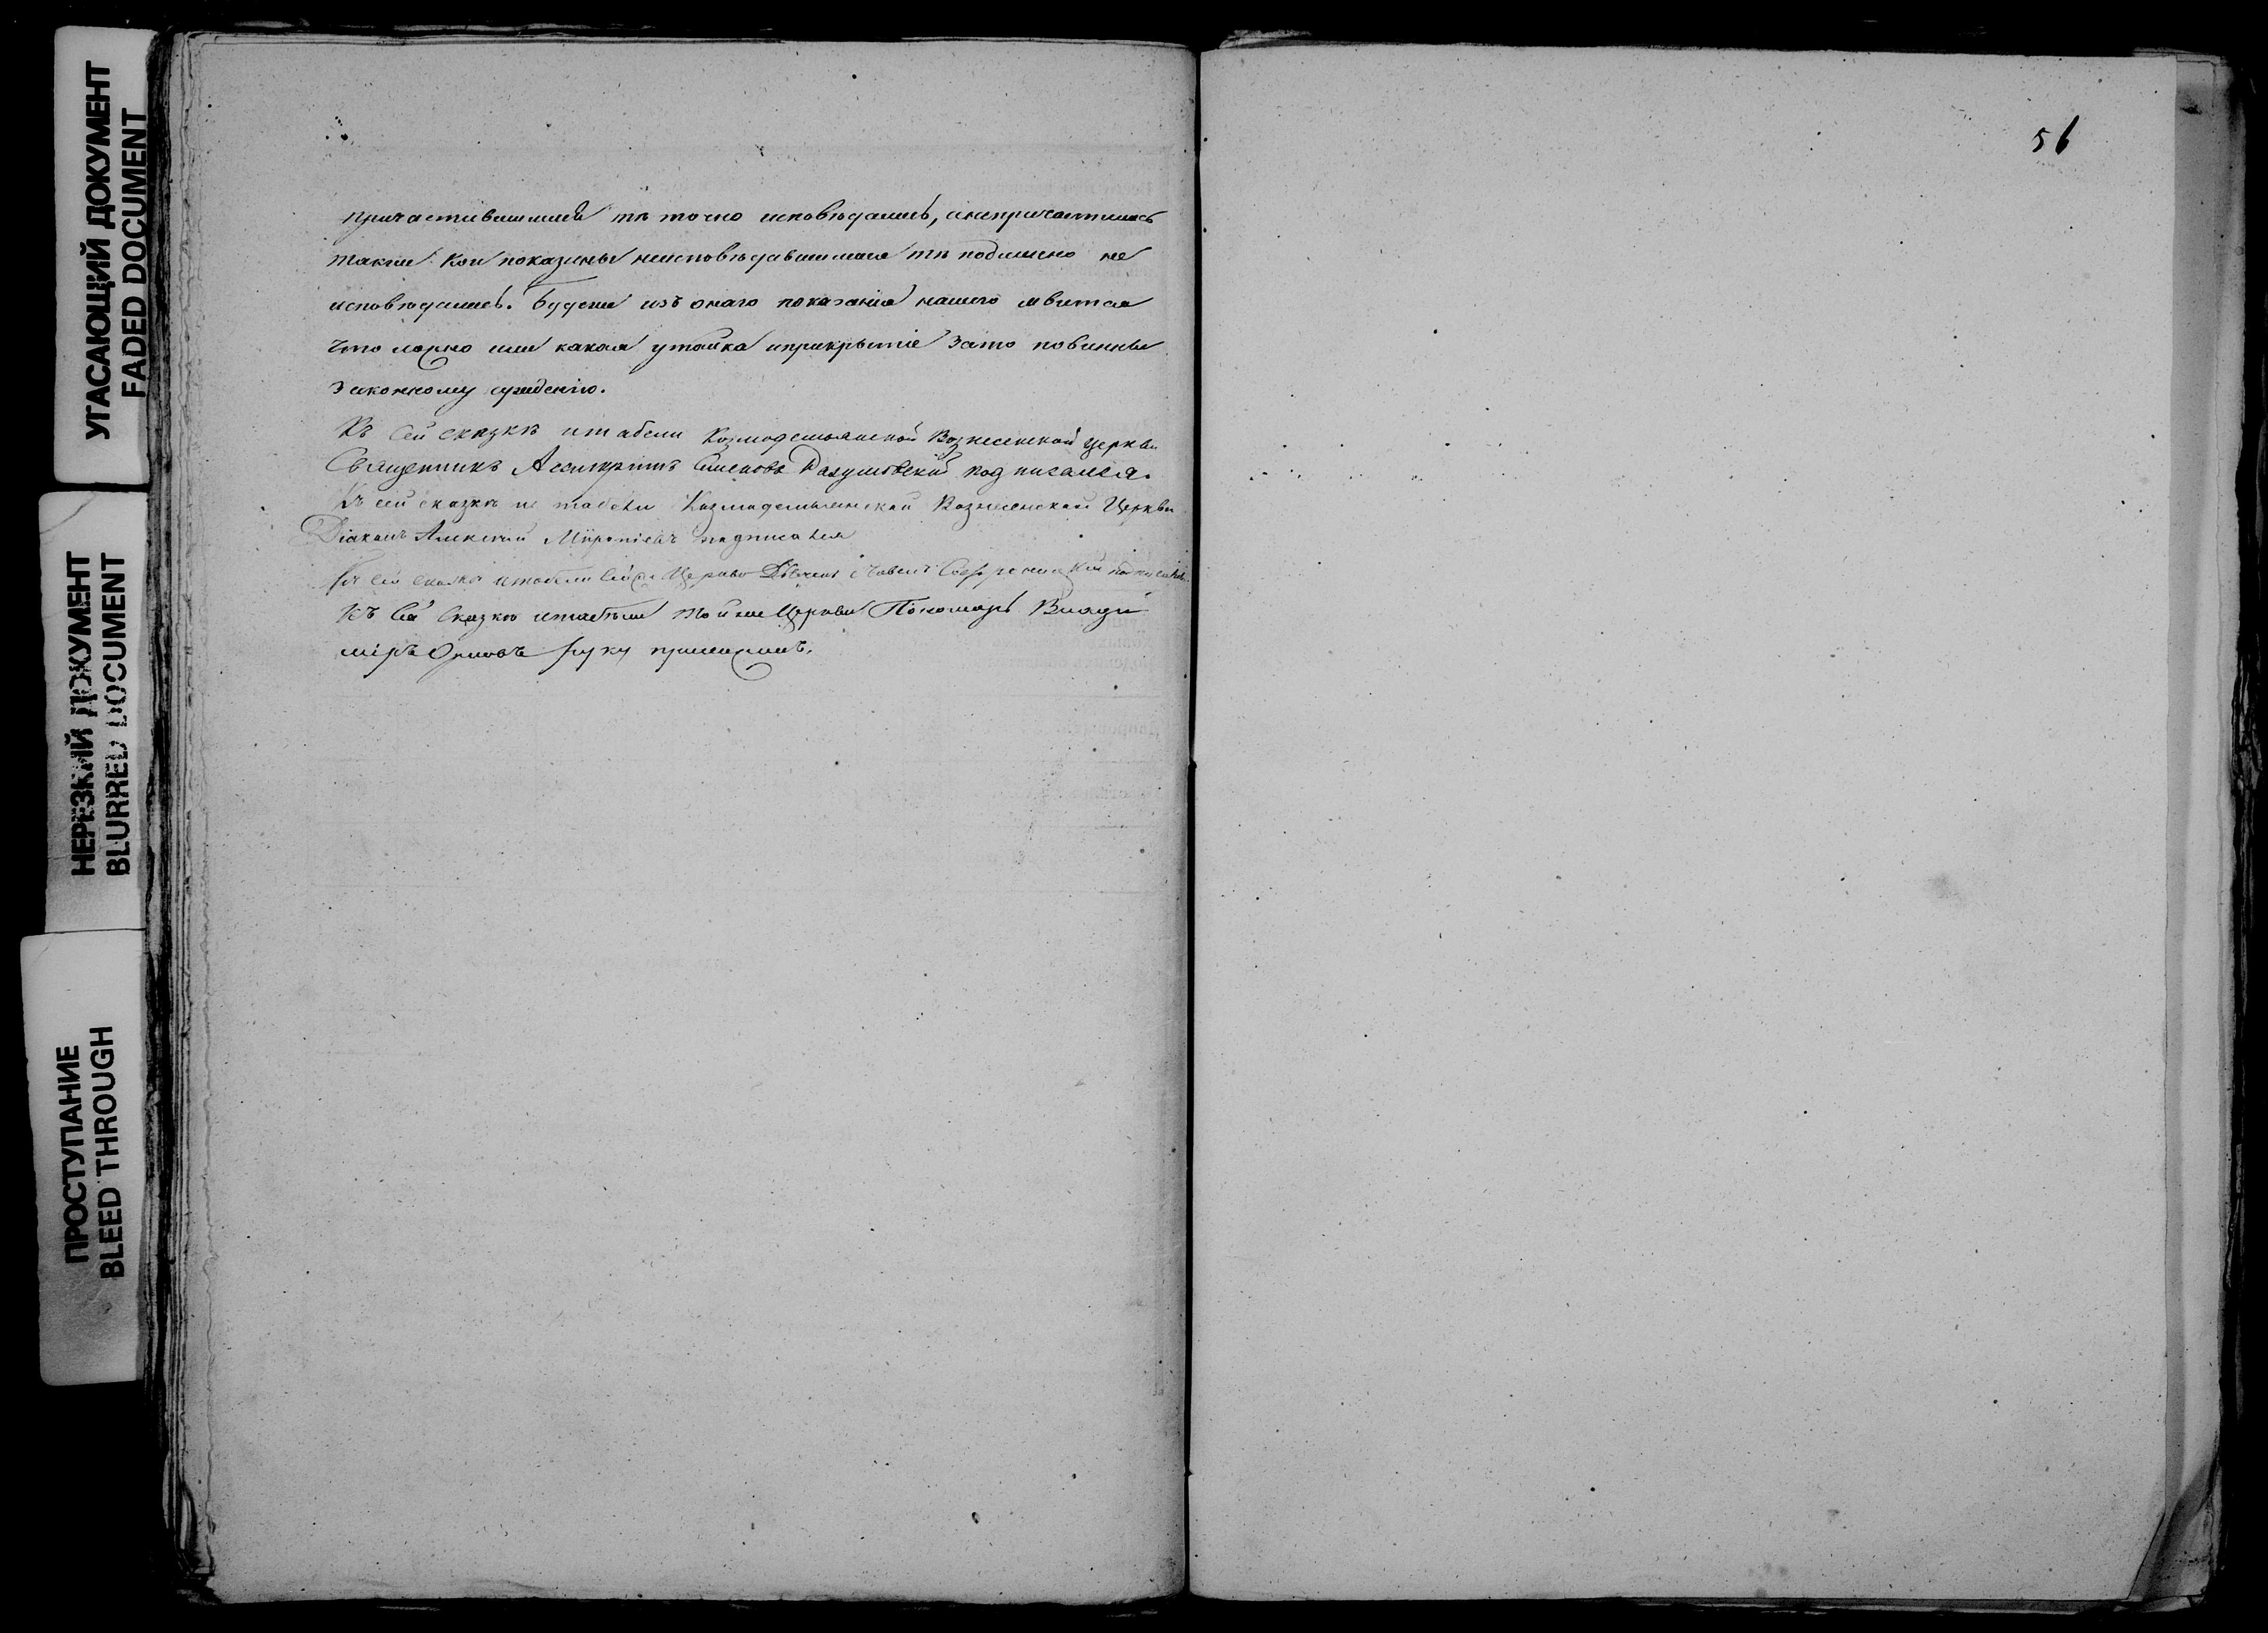 УГАСАЮЩИЙ ДОКУМЕНТ
FADED DOCUMENT
НЕРЕЗКИЙ ДОКУМЕНТ
BLURRED DOCUMENT
ПРОСТУПАНИЕ
BLEED THROUGH
причастившимися тѣ точно исповѣдались, а не причастились
также кои показаны неисповѣдавшимися тѣ подлинно не
исповѣдались. Будеже изъ онаго показанія нашего явится
что ложно или какая утайка и прикрытіе за то повинны
законному сужденію.
Къ сей сказкѣ и табели Козмодемьянской Вознесенской церкви
Священникъ Ассигкритъ Симеоновъ подписался.
Къ сей сказкѣ и табели Козмодемьянской Вознесенской Церкви
Діаконъ Алексѣй подписался
Къ сей сказкѣ и табели Церкви
Къ сей сказкѣ и табели той же Церкви Пономарь Влади
міръ Орловъ руку приложилъ.
56